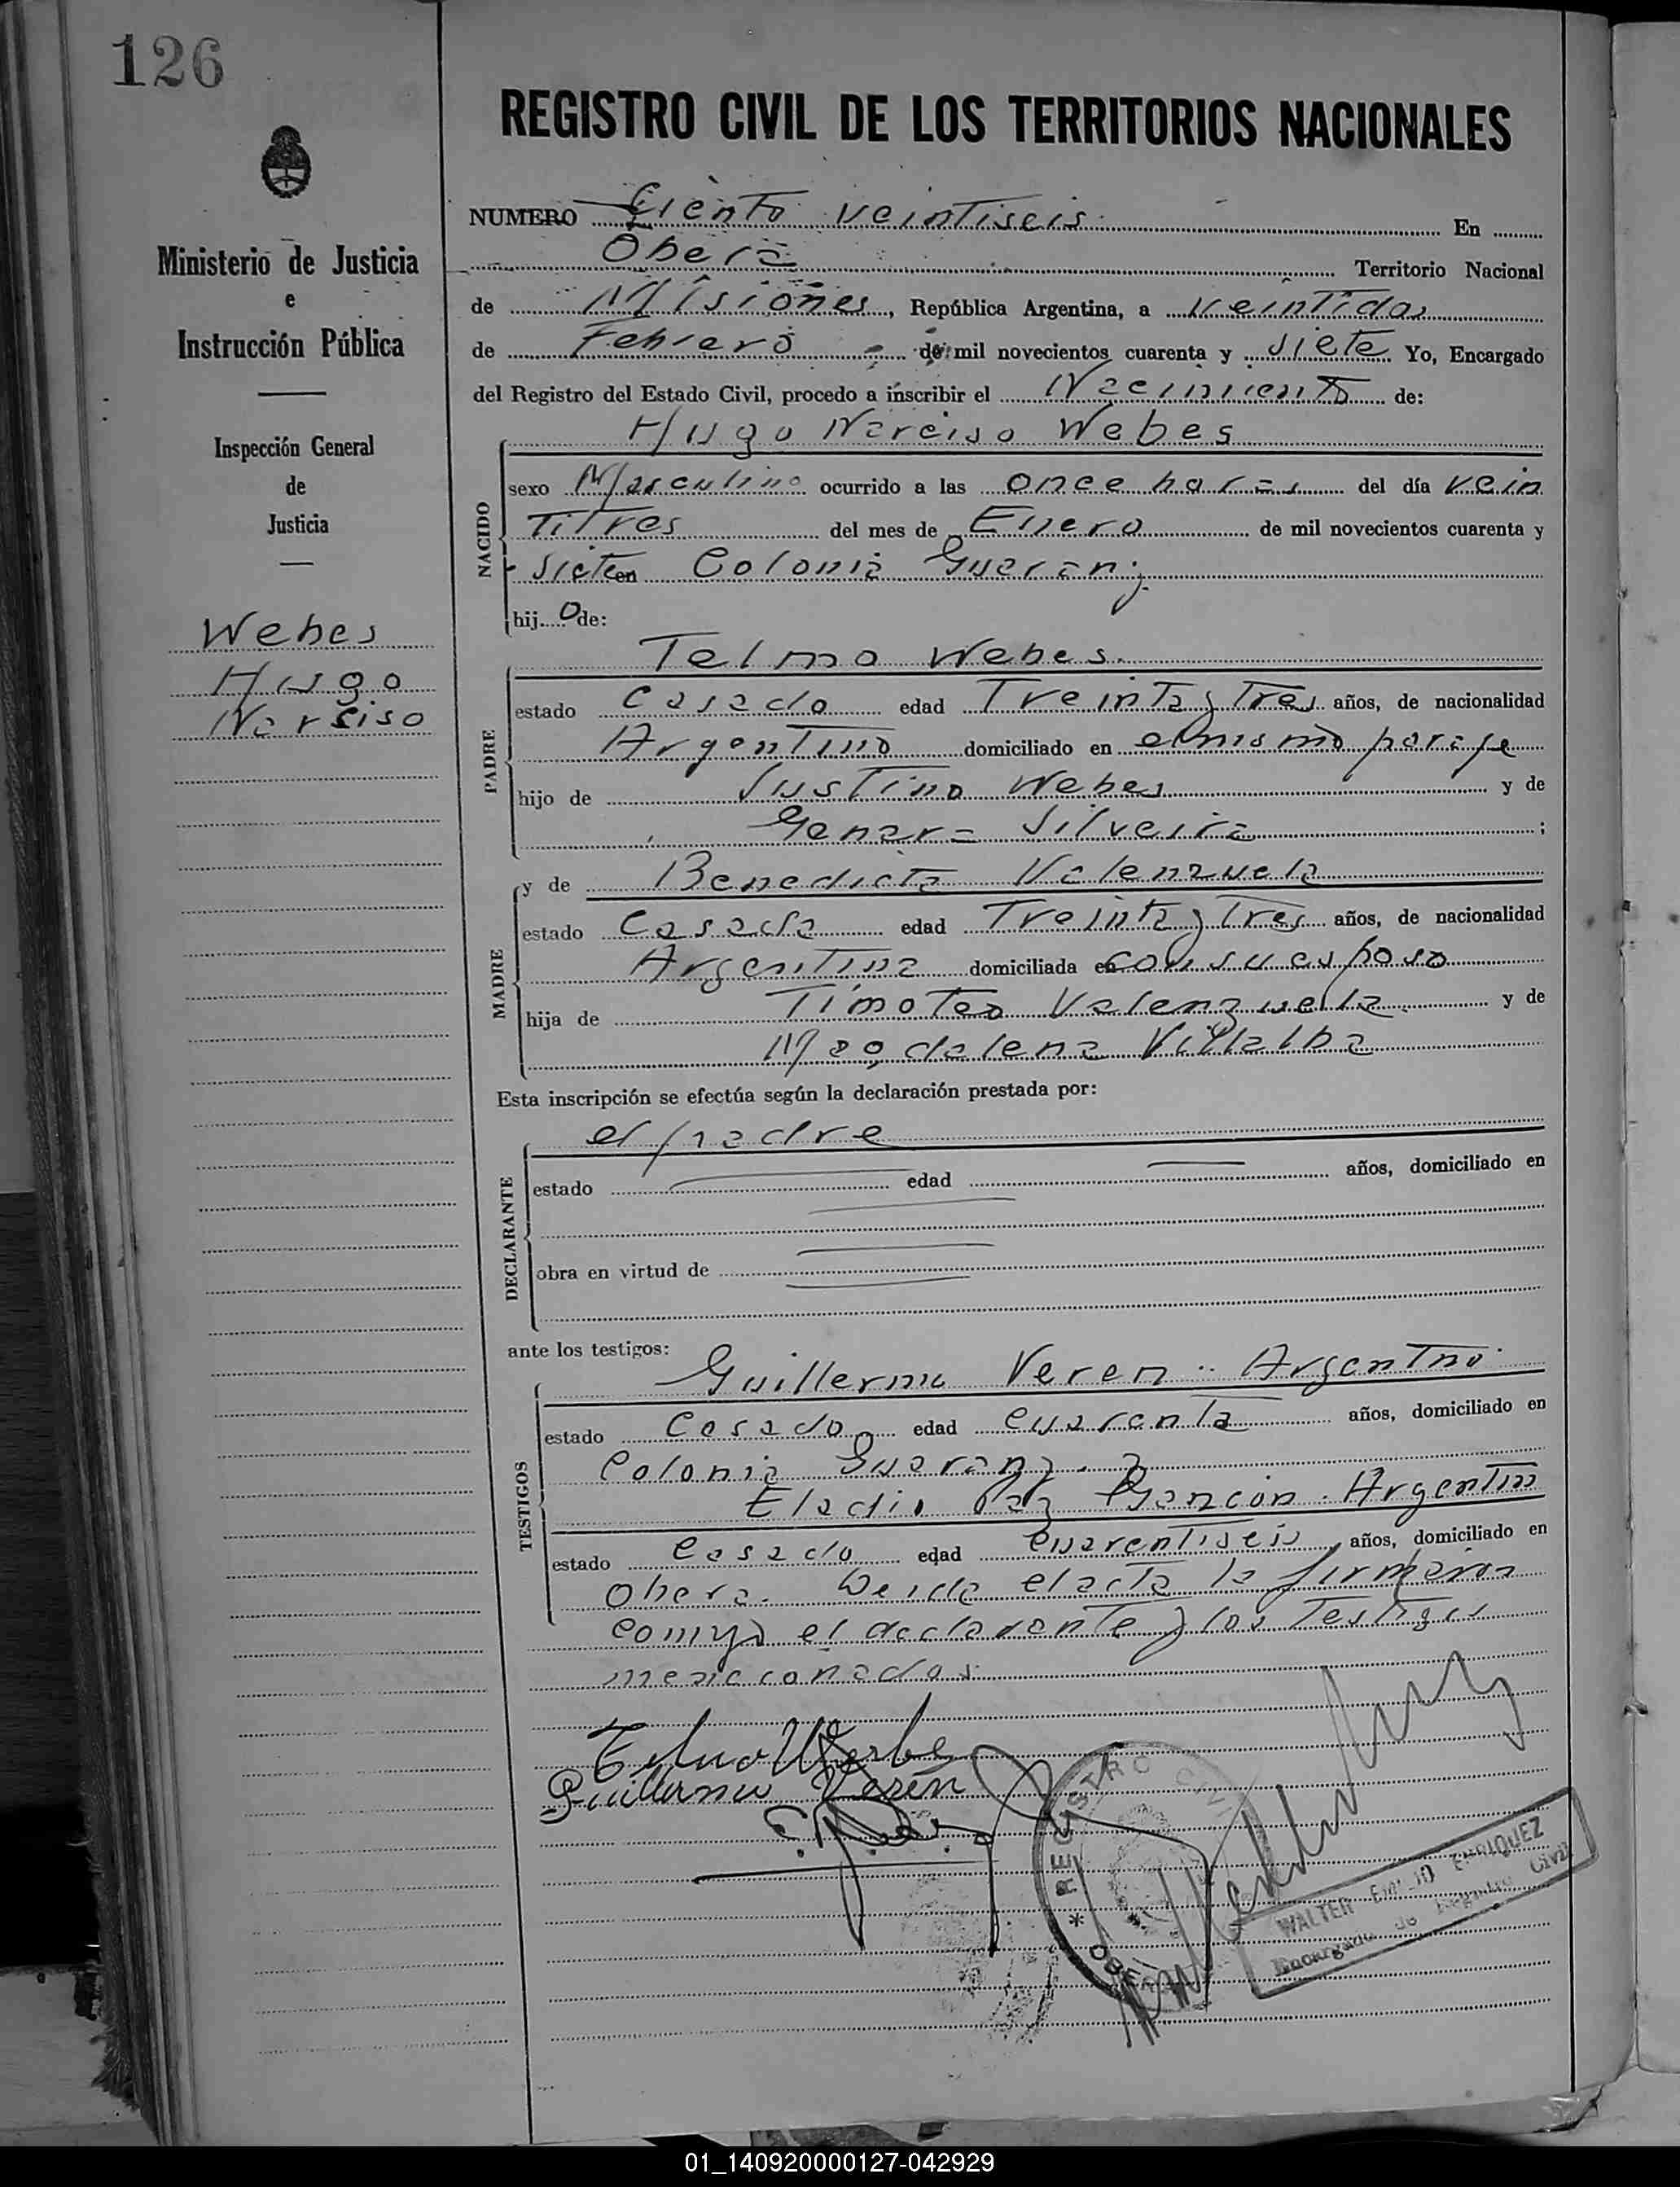 126
REGISTRO CIVIL DE LOS TERRITORIOS NACIONALES
Ministerio de Justicia
e
Instrucción Pública
Inspección General
de
Justicia
Webes
Hugo
Narciso
NUMERO Ciento veintiseis En
Oberá Territorio Nacional
de Misiones, República Argentina, a Veintidos
de Febrero de mil novecientos cuarenta y siete Yo, Encargado
del Registro del Estado Civil, procedo a inscribir el Nacimiento de:
NACIDO
Hugo Narciso Webes
sexo Masculino ocurrido a las once horas del día vein
titres del mes de Enero de mil novecientos cuarenta y
siete en Colonia Guarany
hijo de:
PADRE
Telmo Webes.
estado casado edad Treinta y Tres años, de nacionalidad
Argentino domiciliado en el mismo paraje
hijo de Justino Webes y de
Genara Silveira ;
MADRE
y de Benedicta Valenzuela
estado Casada edad Treinta y Tres años, de nacionalidad
Argentina domiciliada en con su esposo
hija de Timoteo Valenzuela y de
Magdalena Villalba
Esta inscripción se efectúa según la declaración prestada por:
DECLARANTE
el padre
estado edad años, domiciliado en
obra en virtud de
ante los testigos:
TESTIGOS
Guillermo Veren.. Argentino
estado Casado edad cuarenta años, domiciliado en
Colonia Guarany. y
Eladio Argentino
estado Casado edad cuarentiseis años, domiciliado en
Oberá. Leida el acta la firmaron
conmigo el declarante y los Testigos
mencionados
Telmo Werbe
Guillermo Verén
REGISTRO CIVIL
OBERA
WALTER EMILIO ENRIQUEZ
Encargado de Registro Civil
01_140920000127-042929